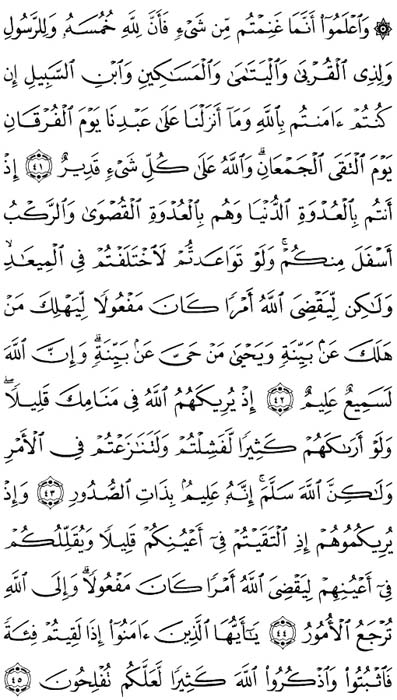 ۞ وَٱعۡلَمُوٓاْ أَنَّمَا غَنِمۡتُم مِّن شَيۡءٖ فَأَنَّ لِلَّهِ خُمُسَهُۥ وَلِلرَّسُولِ
وَلِذِي ٱلۡقُرۡبَىٰ وَٱلۡيَتَٰمَىٰ وَٱلۡمَسَٰكِينِ وَٱبۡنِ ٱلسَّبِيلِ إِن
كُنتُمۡ ءَامَنتُم بِٱللَّهِ وَمَآ أَنزَلۡنَا عَلَىٰ عَبۡدِنَا يَوۡمَ ٱلۡفُرۡقَانِ
يَوۡمَ ٱلۡتَقَى ٱلۡجَمۡعَانِۗ وَٱللَّهُ عَلَىٰ كُلِّ شَيۡءٖ قَدِيرٌ ٤١ إِذۡ
أَنتُم بِٱلۡعُدۡوَةِ ٱلدُّنۡيَا وَهُم بِٱلۡعُدۡوَةِ ٱلۡقُصۡوَىٰ وَٱلرَّكۡبُ
أَسۡفَلَ مِنكُمۡۚ وَلَوۡ تَوَاعَدتُّمۡ لَٱخۡتَلَفۡتُمۡ فِي ٱلۡمِيعَٰدِ
وَلَٰكِن لِّيَقۡضِيَ ٱللَّهُ أَمۡرٗا كَانَ مَفۡعُولٗا لِّيَهۡلِكَ مَنۡ
هَلَكَ عَنۢ بَيِّنَةٖ وَيَحۡيَىٰ مَنۡ حَيَّ عَنۢ بَيِّنَةٖۗ وَإِنَّ ٱللَّهَ
لَسَمِيعٌ عَلِيمٌ ٤٢ إِذۡ يُرِيكَهُمُ ٱللَّهُ فِي مَنَامِكَ قَلِيلٗاۖ
وَلَوۡ أَرَىٰكَهُمۡ كَثِيرٗا لَّفَشِلۡتُمۡ وَلَتَنَٰزَعۡتُمۡ فِي ٱلۡأَمۡرِ
وَلَٰكِنَّ ٱللَّهَ سَلَّمَۚ إِنَّهُۥ عَلِيمُۢ بِذَاتِ ٱلصُّدُورِ ٤٣ وَإِذۡ
يُرِيكُمُوهُمۡ إِذِ ٱلۡتَقَيۡتُمۡ فِيٓ أَعۡيُنِكُمۡ قَلِيلٗا وَيُقَلِّلُكُمۡ
فِيٓ أَعۡيُنِهِمۡ لِيَقۡضِيَ ٱللَّهُ أَمۡرٗا كَانَ مَفۡعُولٗاۗ وَإِلَى ٱللَّهِ
تُرۡجَعُ ٱلۡأُمُورُ ٤٤ يَٰٓأَيُّهَا ٱلَّذِينَ ءَامَنُوٓاْ إِذَا لَقِيتُمۡ فِئَةٗ
فَٱثۡبُتُواْ وَٱذۡكُرُواْ ٱللَّهَ كَثِيرٗا لَّعَلَّكُمۡ تُفۡلِحُونَ ٤٥